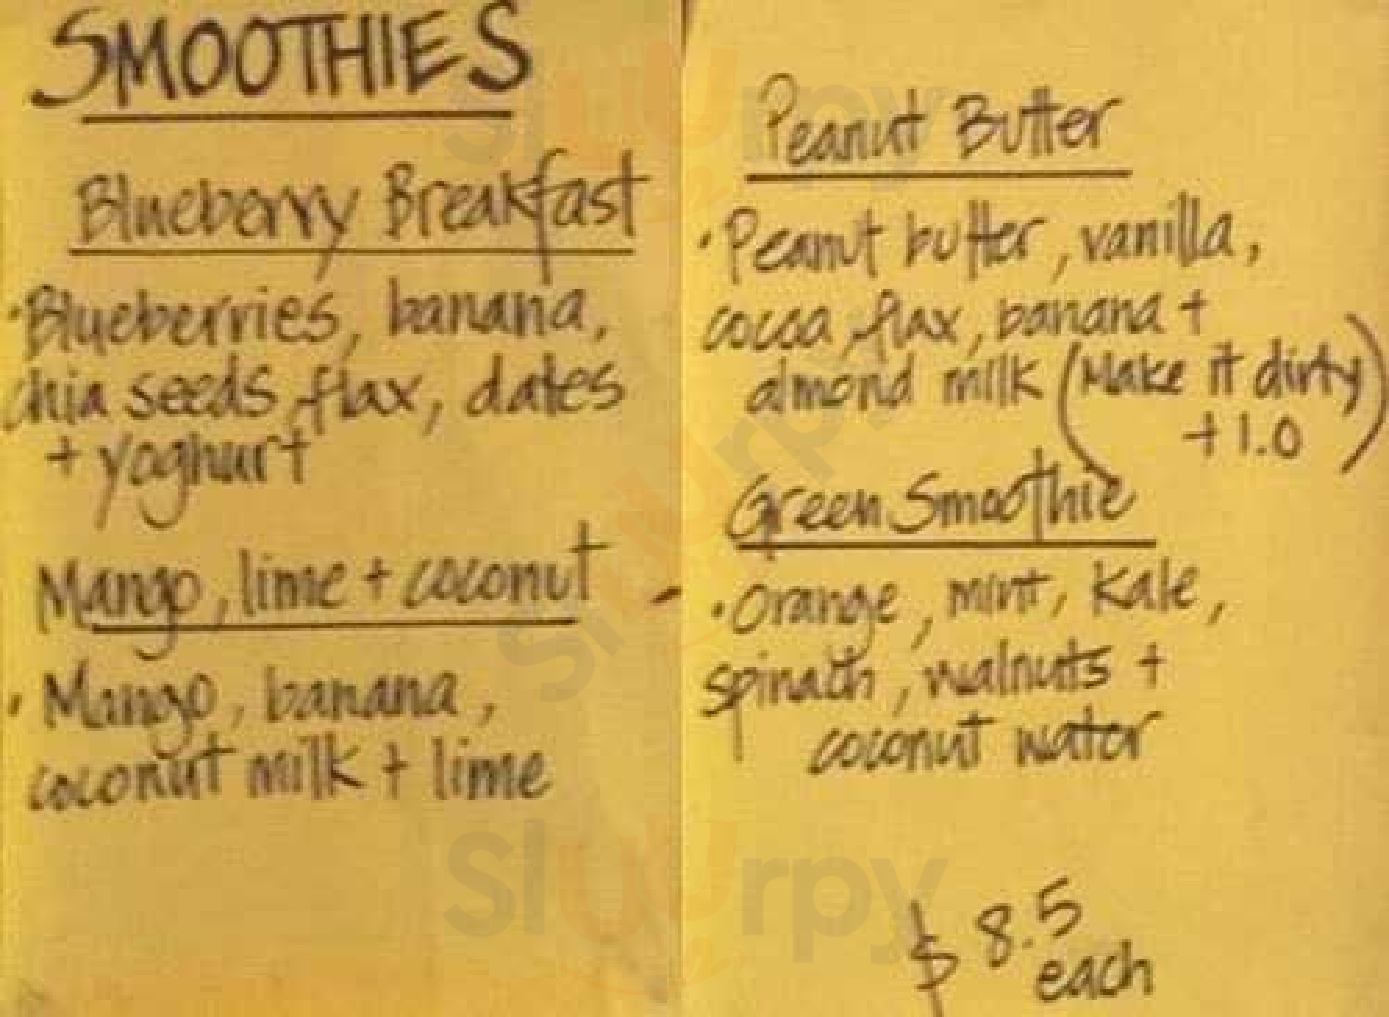 SMOOTHIES
Blueberry Breakfast
• Blueberries, banana,
chia seeds, flax, dates
+ yoghurt
Mango, lime + coconut
• Mango, banana,
coconut milk + lime
Peanut Butter
• Peanut butter, vanilla,
cocoa, flax, banana +
almond milk (Make it dirty
+ 1.0)
Green Smoothie
• Orange, mint, kale,
spinach, walnuts +
coconut water
$ 8.5
each
Slurpy
Slurpy
Slurpy